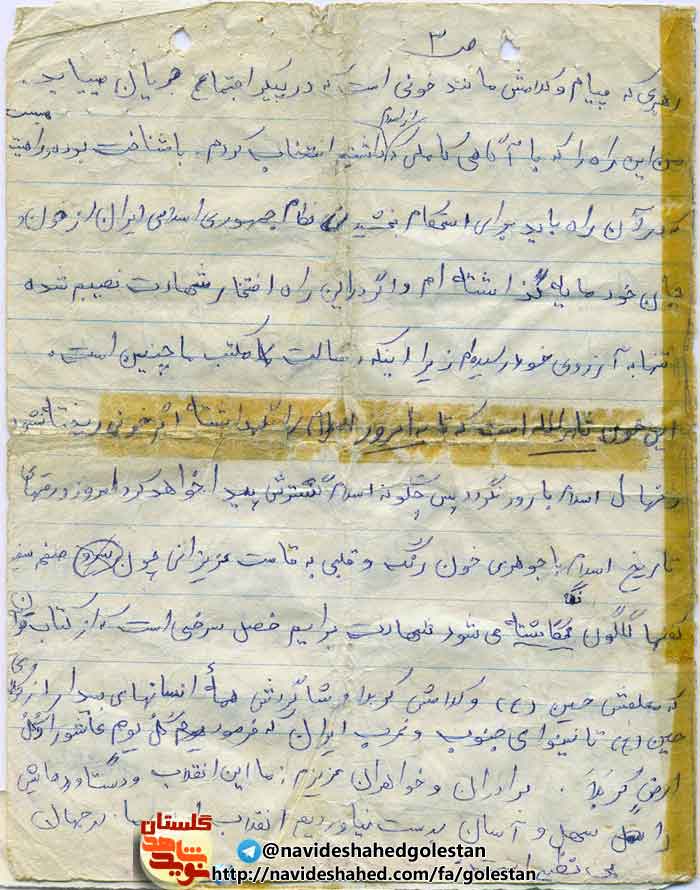 ص ۳
رهبری که پیام و کلامش مانند خونی است که در پیکر اجتماع جریان مییابد.
من این راه را که با آگاهی کاملی که داشتیم انتخاب کردم. با شناخت بوده و راهیست
که در آن راه باید برای استحکام بخشیدن نظام جمهوری اسلامی ایران از خون و
جان خود مایه گذاشته ام و اگر در این راه افتخار شهادت نصیبم شده
تنها به آرزوی خود رسیدم زیرا اینکه رسالت مکتب ما چنین است.
این خون ثارالله است که تا به امروز اسلام را نگهداشته اگر خونی ریخته نشود
و نهال اسلام بارور نگردد پس چگونه اسلام گسترش پیدا خواهد کرد امروز ورقهای
تاریخ اسلام با جوهری خون رنگ و قلبی به قامت عزیزانی چون
کفنها گلگون نگاشته می شود شهادت برایم فصل سرخی است که از کتاب قرآن
که معلمش حسین (ع) و کلاسش کربلا و شاگردش همهٔ انسانهای بیدار از کربلای
حسین (ع) تا نینوای جنوب و غرب ایران که فرمود کُلُّ یوم عاشورا و کُلُّ
ارضٍ کربلا. برادران و خواهران عزیزم: ما این انقلاب و دستاوردهایش
را سهل و آسان بدست نیاوردیم انقلاب در جهان
بی نظیر
گلستان
نوید شاهد
@navideshahedgolestan
http://navideshahed.com/fa/golestan